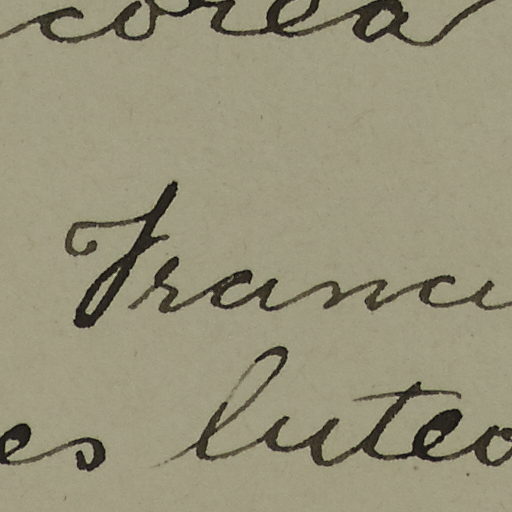 corea
Franci
es luteo